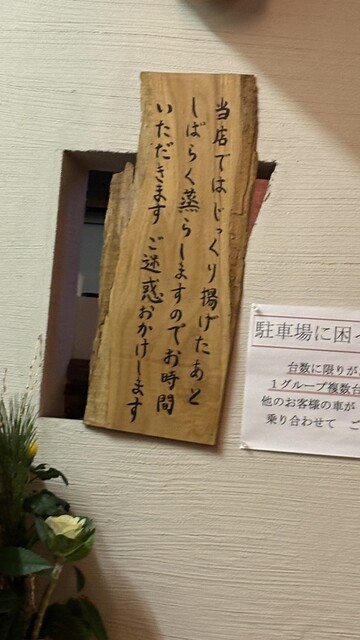 当店ではじっくり揚げたあと
しばらく蒸らしますのでお時間
いただきます ご迷惑おかけします
駐車場に困っ
台数に限りが
1グループ複数台
他のお客様の車が
乗り合わせて ご